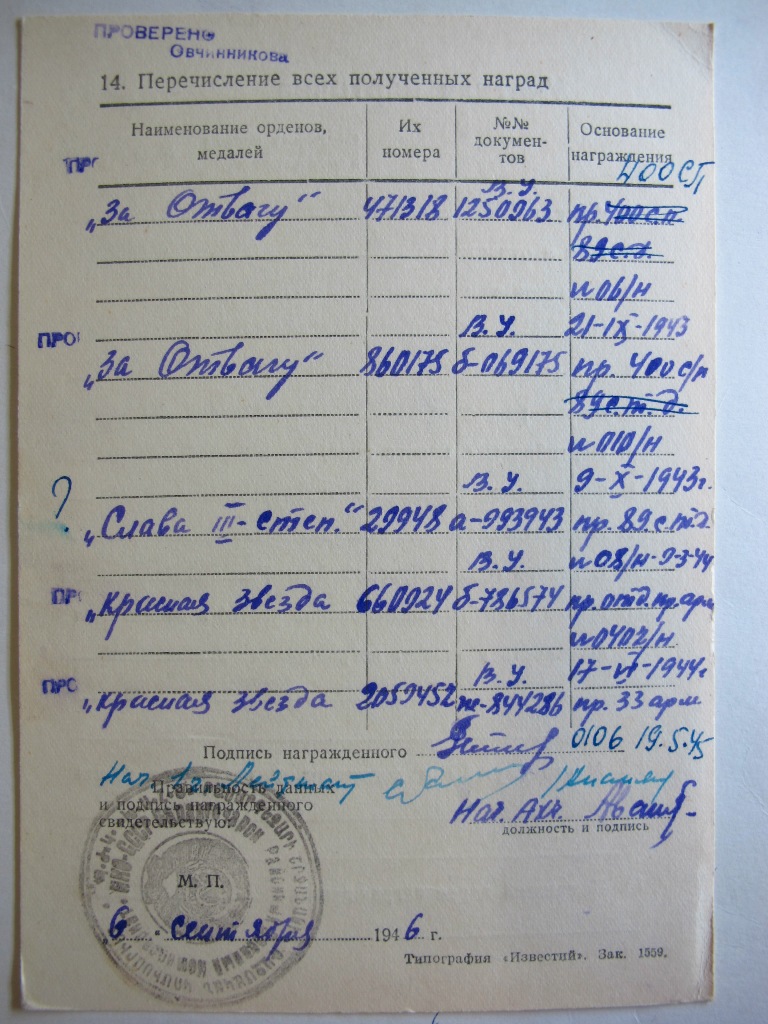 ПРОВЕРЕНО
Овчинникова
14. Перечисление всех полученных наград
Наименование орденов, медалей
Их номера
№№ документов
Основание награждения
400СП
ПРО
В. У.
„За Отвагу“ 471318 1250963 пр. 400 с.п
89 с.д.
№ 06/н
ПРО
В. У. 21-IX-1943
„За Отвагу“ 860175 б-069175 пр. 400 с/п
89 с.т.д.
№ 010/н
?
В. У. 9-X-1943г.
„Слава III-степ.“ 29948 а-993943 пр. 89 с т.д
В. У. № 08/н-9-3-44
ПРО
„Красная звезда 660924 б-786574 пр. отд. пр. арм
№ 0402/н
ПРО
В. У. 17-VI-1944г
„Красная звезда 2059452 ж-844286 пр. 33 арм
Подпись награжденного 0106 19.5.45
Нач. 1ч. Лейтенант
Правильность данных
и подпись награжденного
свидетельствую:
Нач. Адм.
должность и подпись
М. П.
„6“ Сентября 1946 г.
Типография «Известий». Зак. 1559.